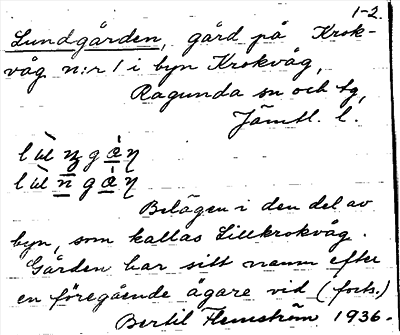 1-2.
Lundgården, gård på Krok-
våg n:r 1 i byn Krokvåg,
Ragunda sn och tg,
Jämtl. l.
Belägen i den del av
byn, som kallas Lillkrokvåg.
Gården har sitt namn efter
en föregående ägare vid (forts.)
Bertil Flemström 1936.